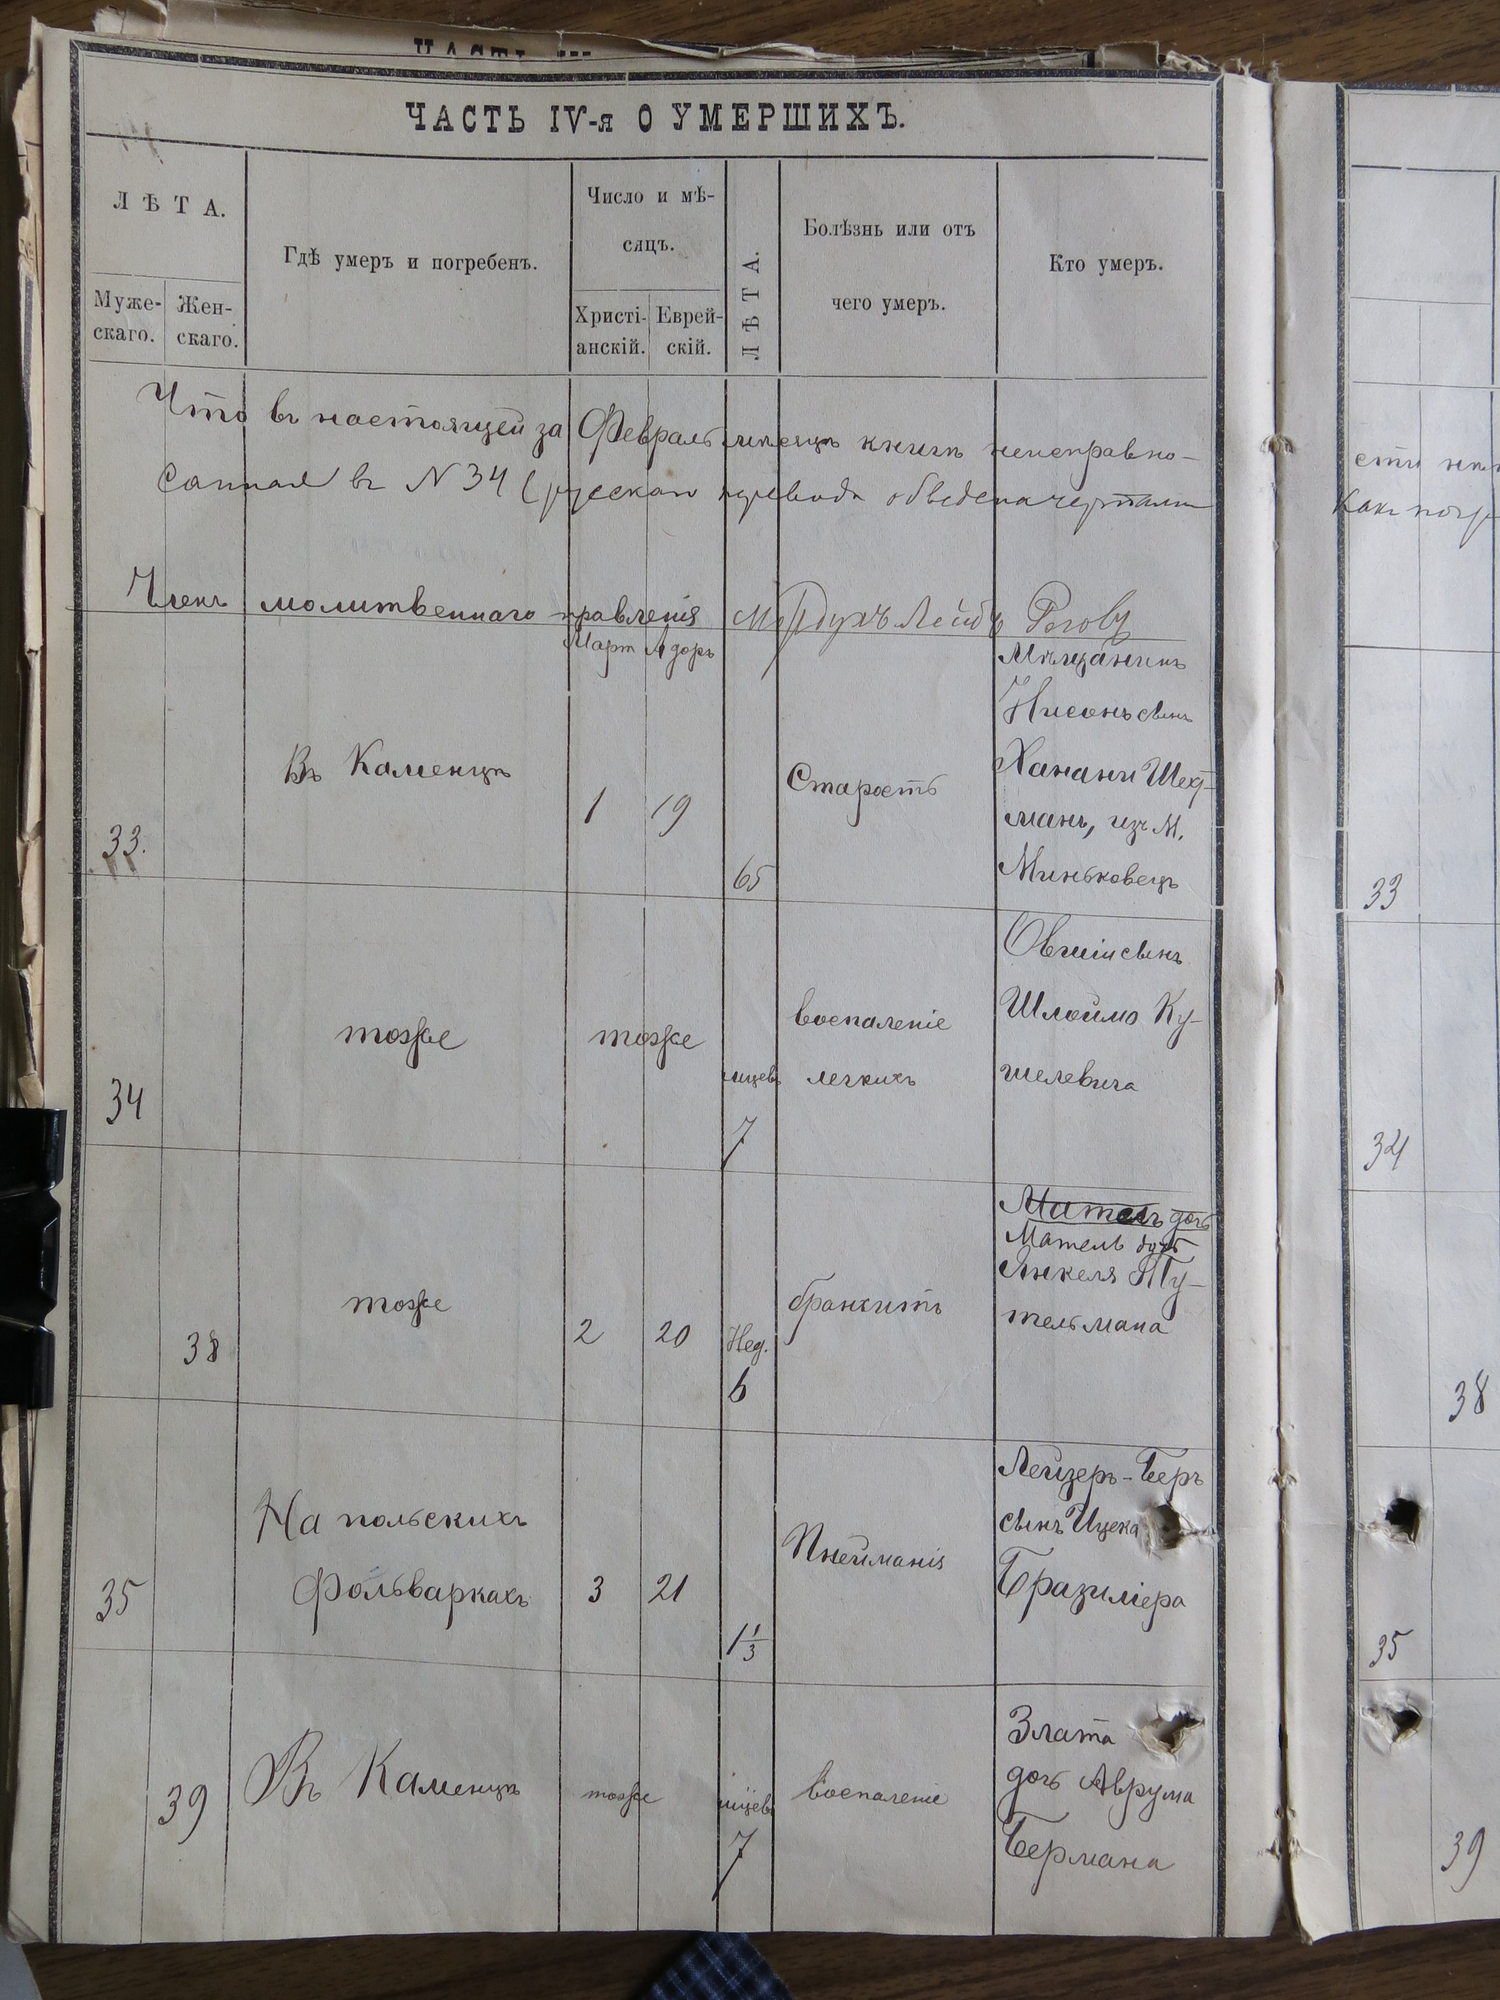 ЧАСТЬ IV-я О УМЕРШИХЪ.
ЛѢТА.
Муже-
скаго.
Жен-
скаго.
Гдѣ умеръ и погребенъ.
Число и мѣ-
сяцъ.
Христі-
анскій.
Еврей-
скій.
ЛѢТА.
Болѣзнь или отъ
чего умеръ.
Кто умеръ.
Что въ настоящей за Февраль мѣсяцъ книгѣ неисправно-
въ N 34 обведена чертами
Членъ молитвеннаго правленія Мордухъ Лейбъ
Март Адоръ
33.
Въ Каменцѣ
1 19
65
Старость
Мѣщанинъ
Нисонъ сынъ
Ханани Шехт-
манъ, изъ М.
Миньковецъ
34
тоже
тоже
7
воспаленіе
легкихъ
Овшій сынъ
Шлоймо Ку-
шелевича
38
тоже
2 20
Нед.
6
бронхитъ
Матель дочь
Янкеля
тельмана
35
На польскихъ
фольваркахъ
3 21
1 1/3
Пнейманія
Лейзеръ-Беръ
сынъ Ицека
Бразиліера
39
Въ Каменцѣ
тоже
7
воспаленіе
Злата
дочь Аврума
Бермана
33
34
38
35
39